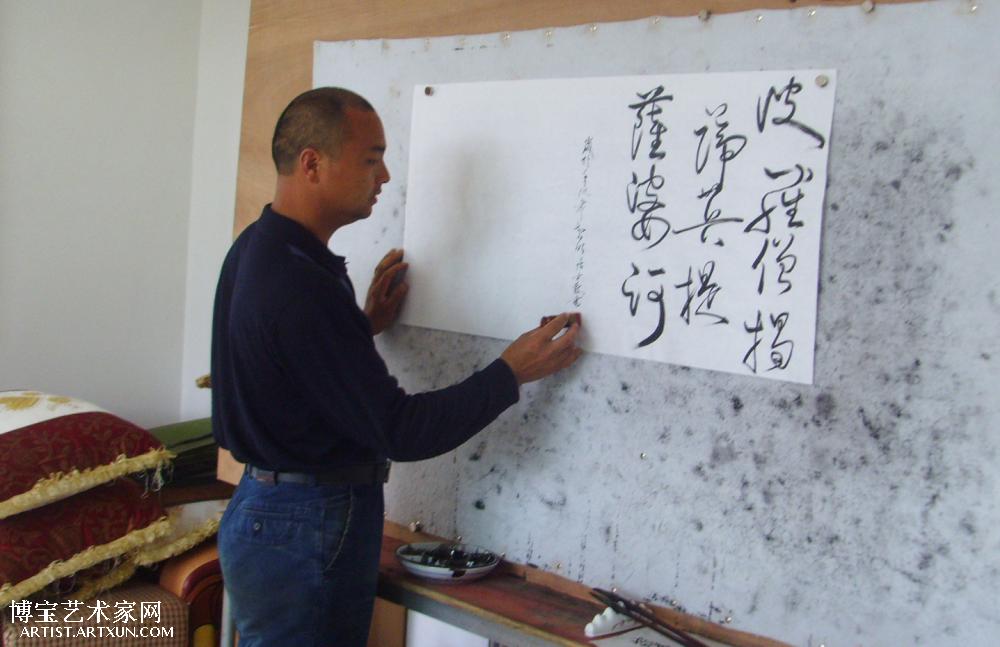 波羅僧揭
諦菩提
薩婆訶
博宝艺术家网
ARTIST.ARTXUN.COM